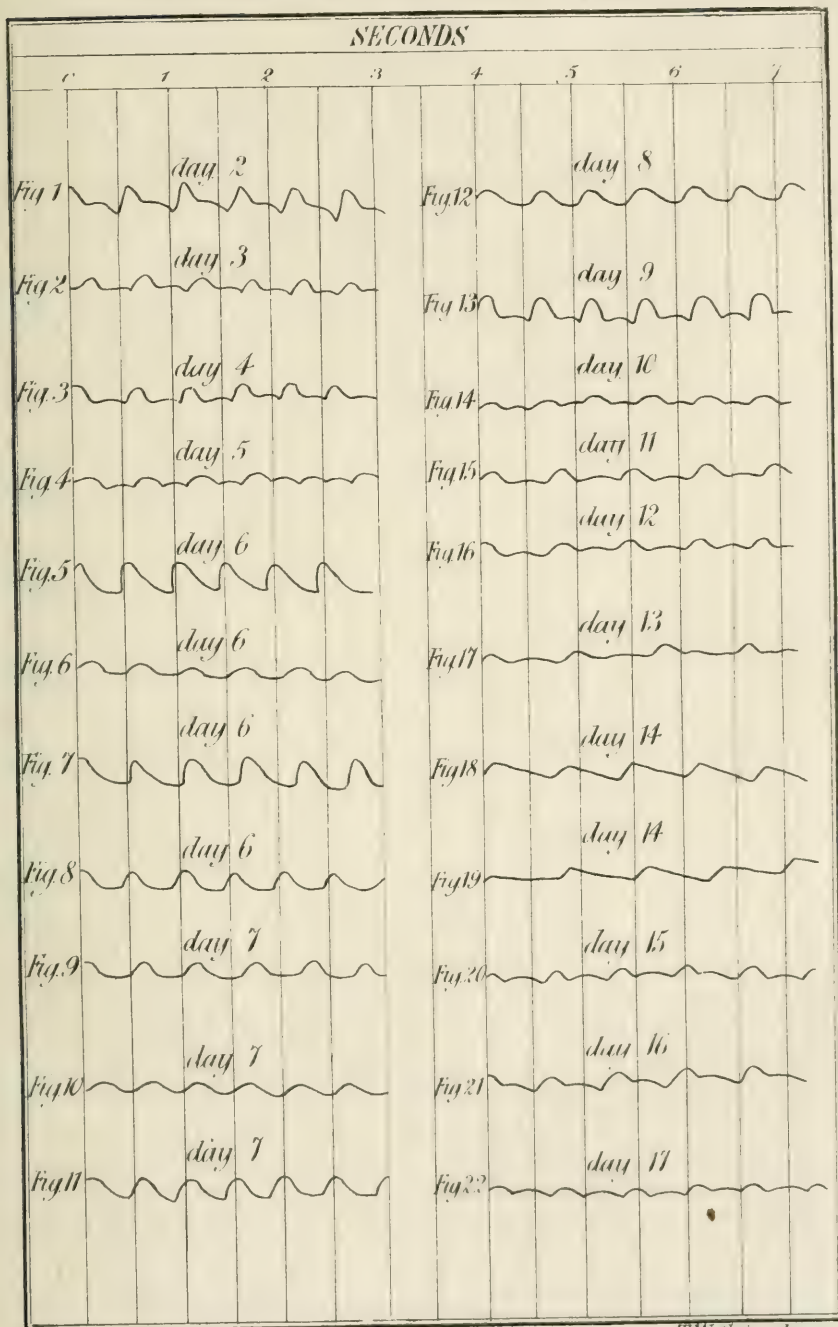 SECONDS
0 1 2 3 4 5 6 7
day 2
Fig 1
day 3
Fig 2
day 4
Fig. 3
day 5
Fig. 4
day 6
Fig. 5
day 6
Fig. 6
day 6
Fig. 7
day 6
Fig. 8
day 7
Fig. 9
day 7
Fig. 10
day 7
Fig. 11
day 8
Fig. 12
day 9
Fig. 13
day 10
Fig. 14
day 11
Fig. 15
day 12
Fig. 16
day 13
Fig. 17
day 14
Fig. 18
day 14
Fig. 19
day 15
Fig. 20
day 16
Fig. 21
day 17
Fig. 22